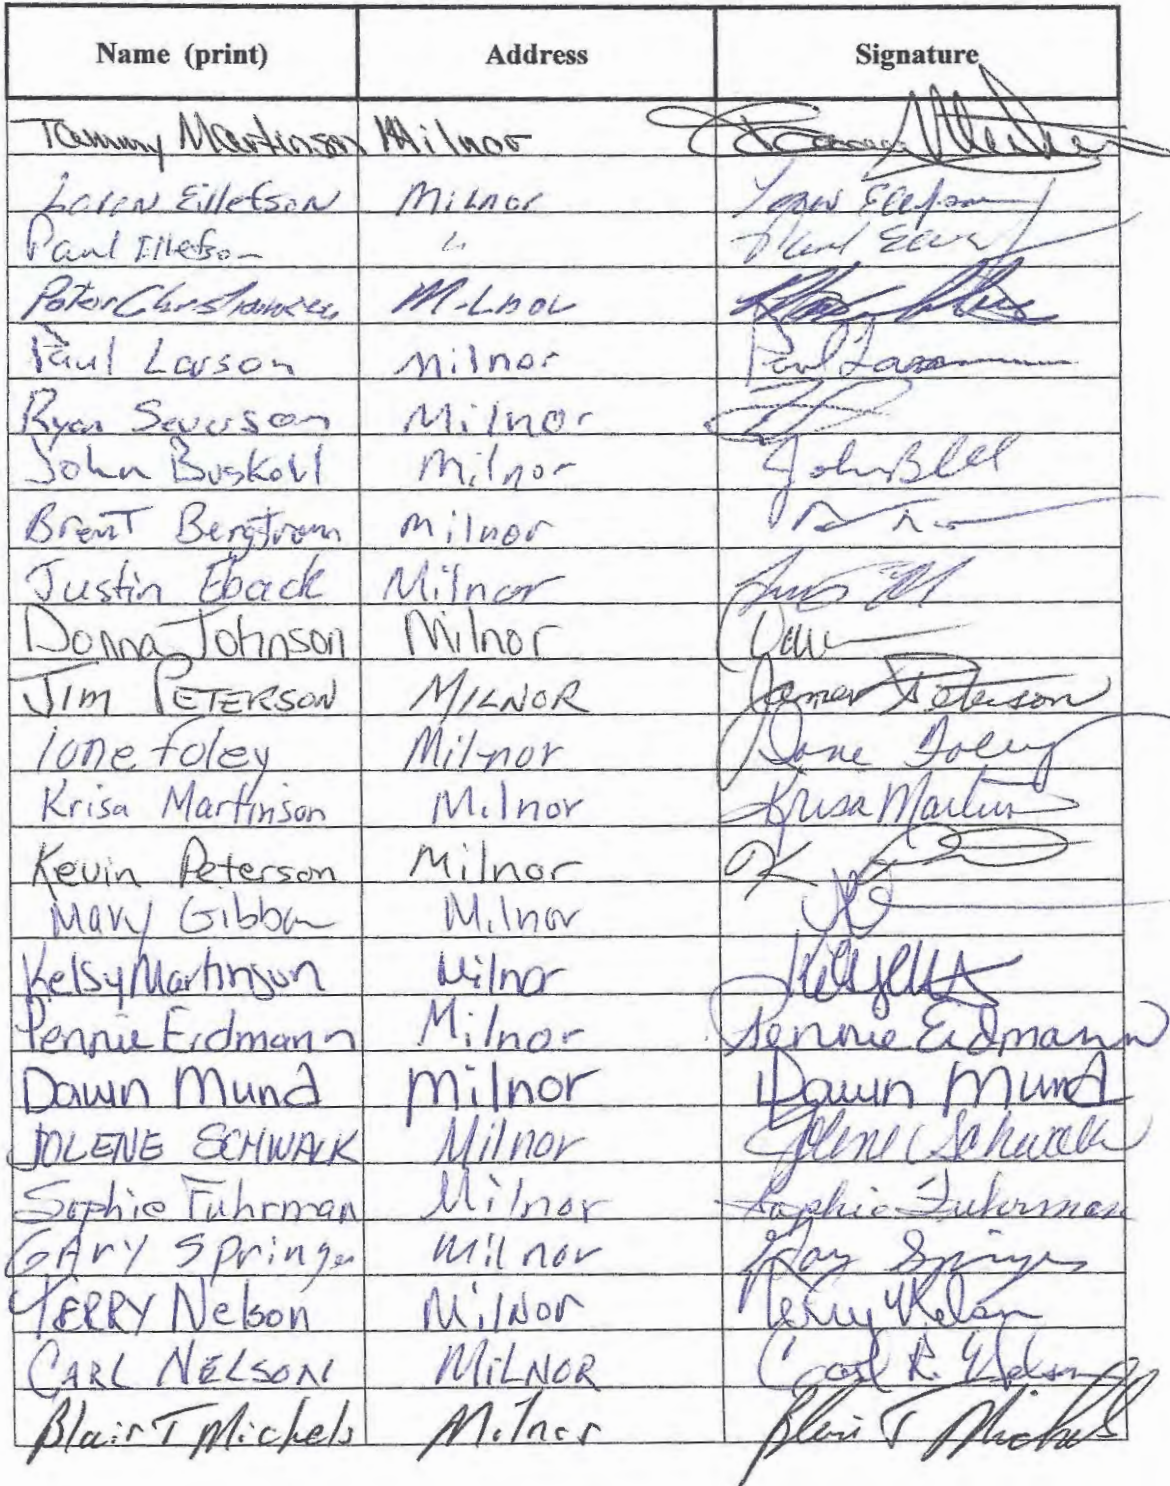 Name (print) Address Signature
Tammy Martinson Milnor
Loren Eillefson Milnor
Paul Illefson "
Peter Milnor
Paul Larson Milnor Paul Larson
Ryan Severson Milnor
John Buskohl Milnor John
Brent Bergstrom Milnor
Justin Eback Milnor
Donna Johnson Milnor
JIM PETERSON MILNOR James Peterson
Ione Foley Milnor Ione Foley
Krisa Martinson Milnor Krisa Martin
Kevin Peterson Milnor
Mary Gibbon Milnor
Kelsy Martinson Milnor
Pennie Erdmann Milnor Pennie Erdmann
Dawn Mund Milnor Dawn Mund
JOLENE SCHWALK Milnor Jolene Schwalk
Sophie Fuhrman Milnor Sophie Fuhrman
GAry Springer Milnor Gary Springer
TERRY Nelson Milnor Terry Nelson
CARL NELSON MILNOR Carl R. Nelson
Blair T Michels Milnor Blair T Michels